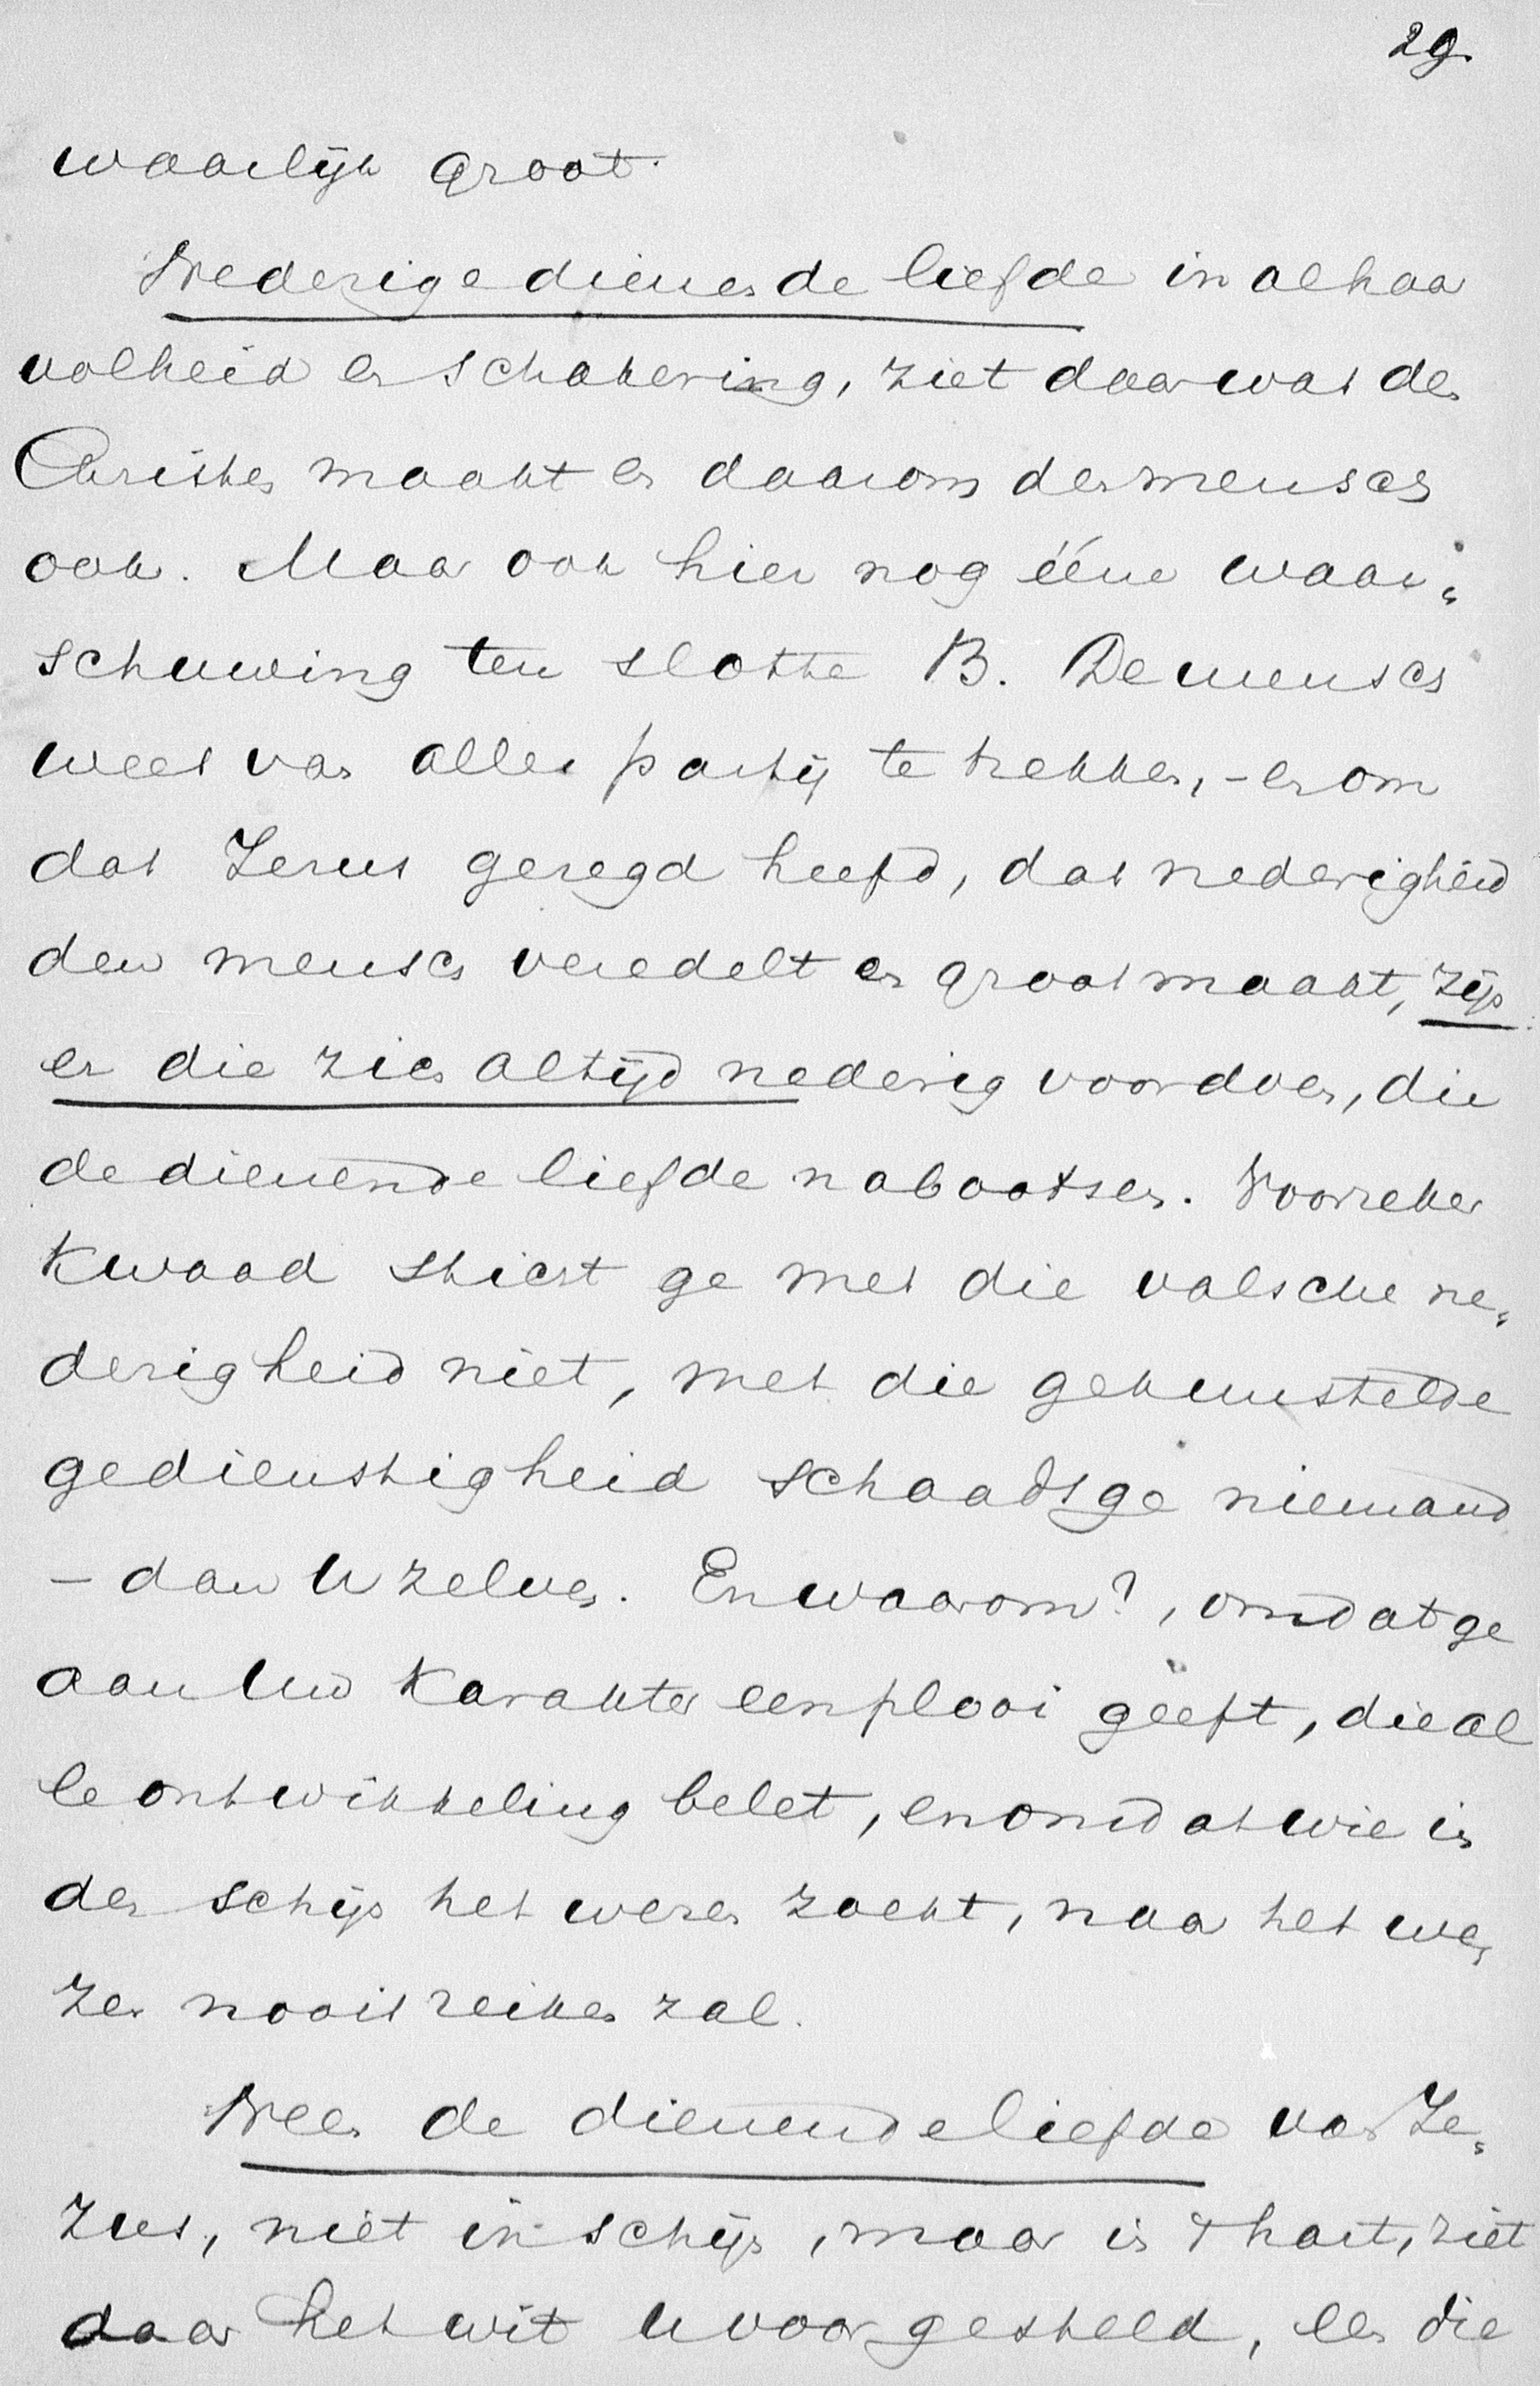 29.
waarlijk groot.
Nederige dienende liefde in al haar
volheid en schakering, ziet daar wat den
Christen maakt en daarom den mensch
ook. Maar ook hier nog ééne waar=
schuwing ten slotte B. De mensch
weet van alles partij te trekken, - en om
dat Jezus gezegd heeft, dat nederigheid
den mensch veredelt en groot maakt, zijn
er die zich altijd nederig voordoen, die
de dienende liefde nabootsen. Voorzeker
kwaad sticht ge met die valsche ne=
derigheid niet, met die gekunstelde
gedienstigheid schaadt ge niemand
- dan U zelven. En waarom?, omdat ge
aan Uw karakter een plooi geeft, die al
le ontwikkeling belet, en omdat wie in
den schijn het wezen zoekt, naar het we=
zen nooit reiken zal.
Neen de dienende liefde van Je=
zus, niet in schijn, maar in 't hart, ziet
daar het wit U voorgesteld, en die